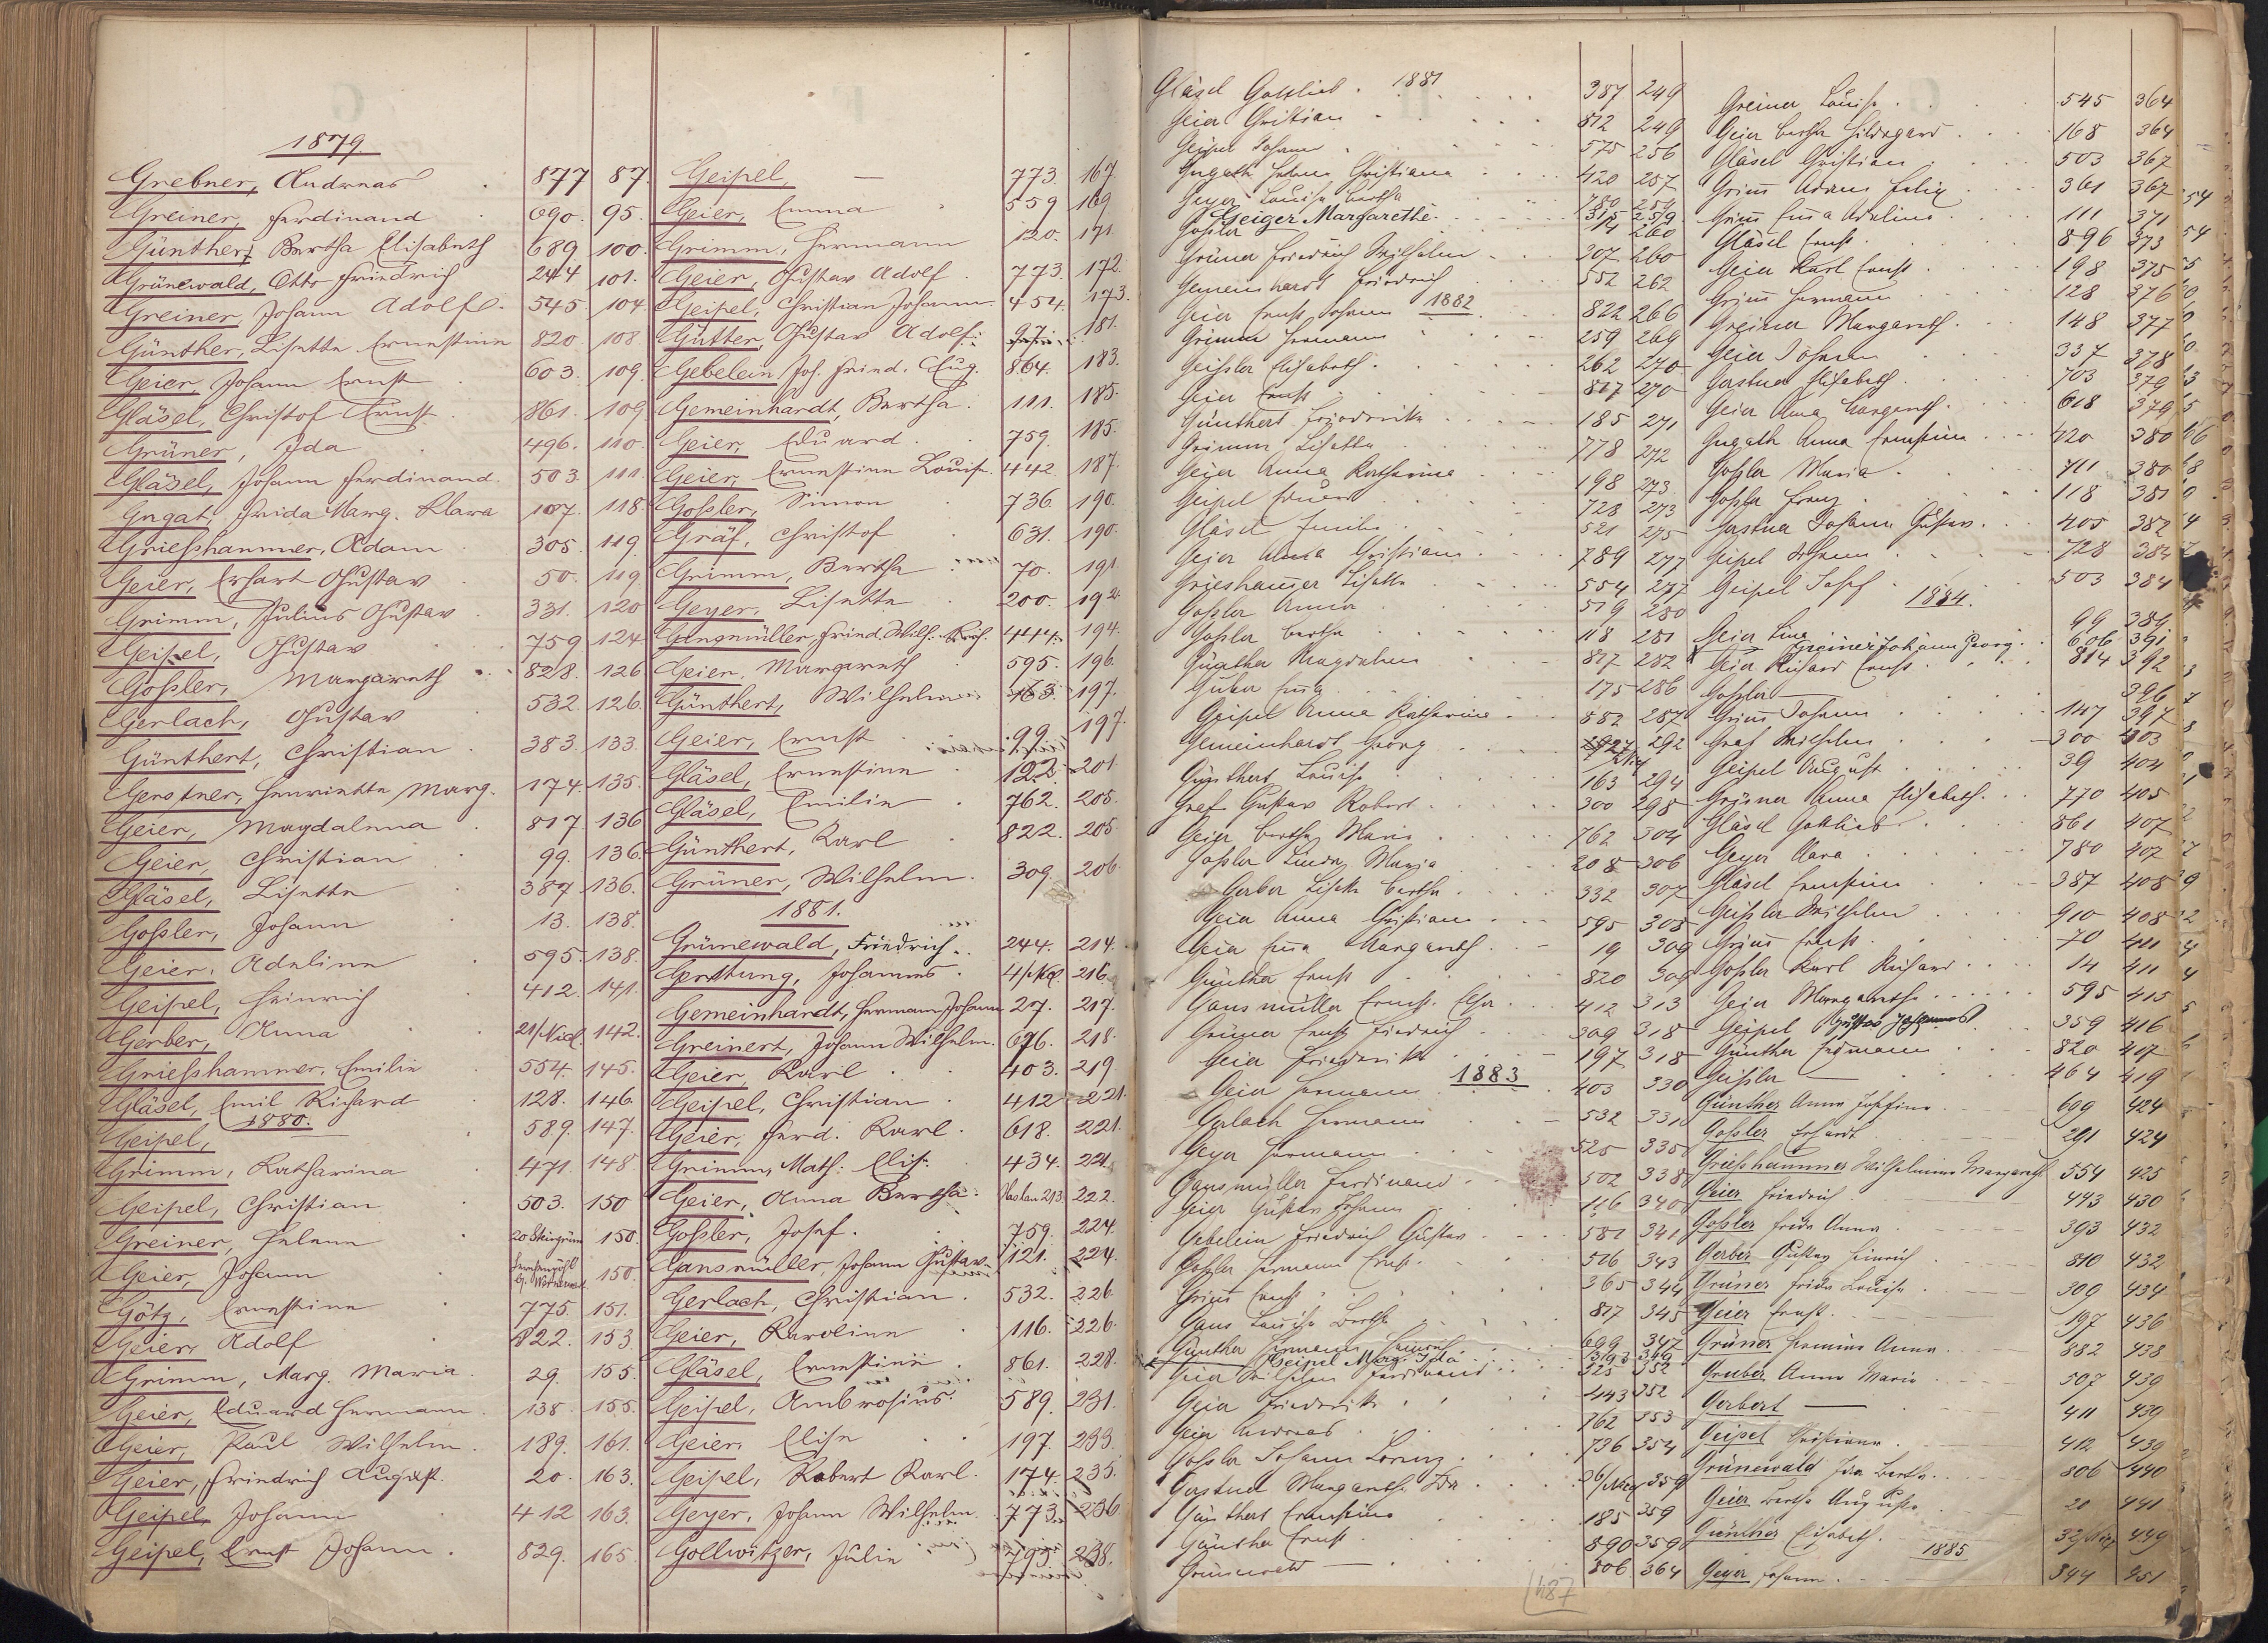 1879.
Grebner, Andreas 877 87.
Greiner, Ferdinand 690. 95.
Günther, Bertha Elisabeth 689. 100.
Grünewald, Otto Friedrich 244 101.
Greiner, Johann Adolf 545. 104.
Günther, Lisette Ernestine 820. 108.
Geier, Johann Ernst 603. 109.
Gläsel, Christof Ernst 861. 109
Grüner, Ida 496. 110.
Gläsel, Johann Ferdinand. 503. 111.
Gngat, Frida Marg. Klara 107. 118.
Grießhammer, Adam 305. 119.
Geier, Erhart Gustav 50. 119
Grimm, Julius Gustav 331. 120
Geipel, Gustav 759 124
Goßler, Margareth 828. 126
Gerlach, Gustav 532. 126.
Günthert, Christian 383. 133.
Gerstner, Henriette Marg. 174. 135.
Geier, Magdalena 817. 136
Geier, Christian 99. 136.
Gläsel, Lisette 387. 136.
Goßler, Johann 13. 138.
Geier, Adeline 595. 138.
Geipel, Heinrich 412. 141.
Gerber, Anna 21/Nied. 142.
Grießhammer, Emilie 554. 145.
Gläsel, Emil Richard 128. 146.
1880.
Geipel, 589. 147.
Grimm, Katharina 471. 148
Geipel, Christian 503. 150
Greiner, Helene 150.
Geier, Johann 150.
Götz, Ernestine 775. 151.
Geier, Adolf 822. 153
Grimm, Marg. Maria 29. 155.
Geier, Eduard Hermann 138. 155.
Geier, Paul Wilhelm 189. 161.
Geier, Friedrich August. 20. 163.
Geipel, Johann 412 163.
Geipel, Ernst Johann. 829. 165
Geipel, — 773. 167.
Geier, Emma 559. 169
Grimm, Hermann 120. 171
Geier, Gustav Adolf 773. 172.
Geipel, Christian Johann. 454. 173.
Gütter, Gustav Adolf 97. 181.
Gebelein, Joh. Fried. Aug. 864. 183.
Gemeinhardt, Bertha 111. 185.
Geier, Eduard 759. 185.
Geier, Ernestine Louise. 442 187.
Goßler, Simon 736. 190.
Gräf, Christof 631. 190.
Grimm, Bertha 70. 191
Geyer, Lisette 200. 192
Gangmüller, Fried. Wilh. 444. 194.
Geier, Margareth 595. 196.
Günthert, Wilhelm 163. 197.
Geier, Ernst 99. 197.
Gläsel, Ernestine 122. 201.
Gläsel, Emilie 762. 205.
Günthert, Karl 822. 205
Grüner, Wilhelm. 309. 206.
1881.
Grünewald, Friedrich 244. 214.
Gerstung, Johannes 4/Nd. 216.
Gemeinhardt, Hermann Johann 27. 217.
Greinert, Johann Wilhelm. 676. 218.
Geier, Karl 403. 219.
Geipel, Christian 412 221.
Geier, Ferd. Karl 618. 221.
Grimm, Math: Elis: 434. 221.
Geier, Anna Bertha 213 222.
Goßler, Josef. 759. 224.
Gansmüller, Johann Gustav 121. 224.
Gerlach, Christian 532. 226.
Geier, Karoline 116. 226.
Gläsel, Ernestine 861. 228.
Geipel, Ambrosius 589. 231.
Geier, Elise 197. 233.
Geipel, Robert Karl 174. 235.
Geyer, Johann Wilhelm. 773. 236.
Gollwitzer, Julie 793. 238.
1881
Gläsel Gottlieb 387 249
Geier Christian 812 249
Geipel Johann 575 256
Gngath Helene Christiana 420 257
Geyer Louise Bertha 780 259
Geiger Margarethe 315 259
Goßler 314 260
Grüner Friedrich Wilhelm 307 260
Gemeinhardt Friedrich 552 262
1882
Geier Ernst Johann 822 266
Grimm Hermann 259 269
Geißler Elisabeth 262 270
Geier Ernst 817 270
Günthert Friederike 185 271
Grimm Lisette 778 272
Geier Anna Katharina 198 273
Geipel Eduard 728 273
Gläsel Emilie 521 275
Geier Anna Christiane 789 277
Grieshammer Lisette 554 277
Goßler Anna 519 280
Goßler Bertha 118 281
Günther Magdalena 817 282
175 286
Geipel Anna Katharina 882 287
Gemeinhardt Georg 292
Günthert Louise 163 294
Graf Gustav Robert 300 298
Geier Bertha Maria 762 304
Goßler Linda Maria 208 306
Gerber Lisette Bertha 332 307
Geier Anna Christiane 595 308
Geier Emma Margareth 19 309
Günther Ernst 820 309
Gansmüller Ernst 412 313
Grüner Ernst Friedrich 309 318
Geier Friederike 197 318
1883
Geier Hermann 403 330
Gerlach Hermann 532 331
Geyer Hermann 525 335
Gansmüller Ferdinand 502 338
Geier Gustav Johann 116 340
Gebelein Friedrich Gustav 581 341
Goßler Hermann Ernst 516 343
Grim Ernst 365 344
Gans Louise Bertha 817 345
Günther Hermann Heinrich 699 347
Geipel Marg. Ida 349
Geier Wilhelm Ferdinand 525 352
Geier Friederike 443 352
Geier Andreas 762 353
Goßler Johann Lorenz 736 354
Gerstner Margareth Ida 359
Günthert Ernestine 185 359
Günther Ernst 890 359
Grünewald — 806 364
487
Greiner Louise 545 364
Geier Bertha Hildegard 168 364
Gläsel Christian 503 367
Grim Adam Felix 361 367
Grim Emma Adeline 111 371
Gläsel Ernst 896 373
Geier Karl Ernst 198 375
Grim Hermann 128 376
Greiner Margareth 148 377
Geier Johann 337 378
Gerstner Elisabeth 703 379
Geier Anna Margareth 618 379
Gngath Anna Ernestine 420 380
Goßler Maria 711 380
Goßler Franz 118 381
Gerstner Johann Gustav 405 382
Geipel Johann 728 384
Geipel Josef 503 384
1884.
Geier Lina 99 389
Greiner Johann Georg 606 391
Geier Richard Ernst 814 392
Goßler — 396
Grim Johann 147 397
Graf Wilhelm 300 403
Geipel August 39 404
Grüner Anna Elisabeth 770 405
Gläsel Gottlieb 861 407
Geyer Klara 780 407
Gläsel Ernestine 387 408
Geißler Wilhelm 910 408
Grim Ernst 70 411
Goßler Karl Richard 14 411
Geier Margarethe 595 415
Geipel Gustav Johannes 359 416
Günther Hermann 820 417
Geißler — 464 419
Günther Anna Josefine 699 424
Goßler Erhardt 291 424
Grießhammer Wilhelmine Margareth 554 425
Geier Friedrich 443 430
Goßler Frida Anna 393 432
Gerber Gustav Heinrich 810 432
Grüner Frida Louise 309 434
Geier Ernst 197 436
Grüner Hermine Anna 882 438
Gruber Anna Maria 507 439
Gerbert — 411 439
Geipel Christiane 412 439
Grünewald Ida Bertha 806 440
Geier Bertha Auguste 20 441
Günther Elisabeth 449
1885
Geyer Johann 844 451